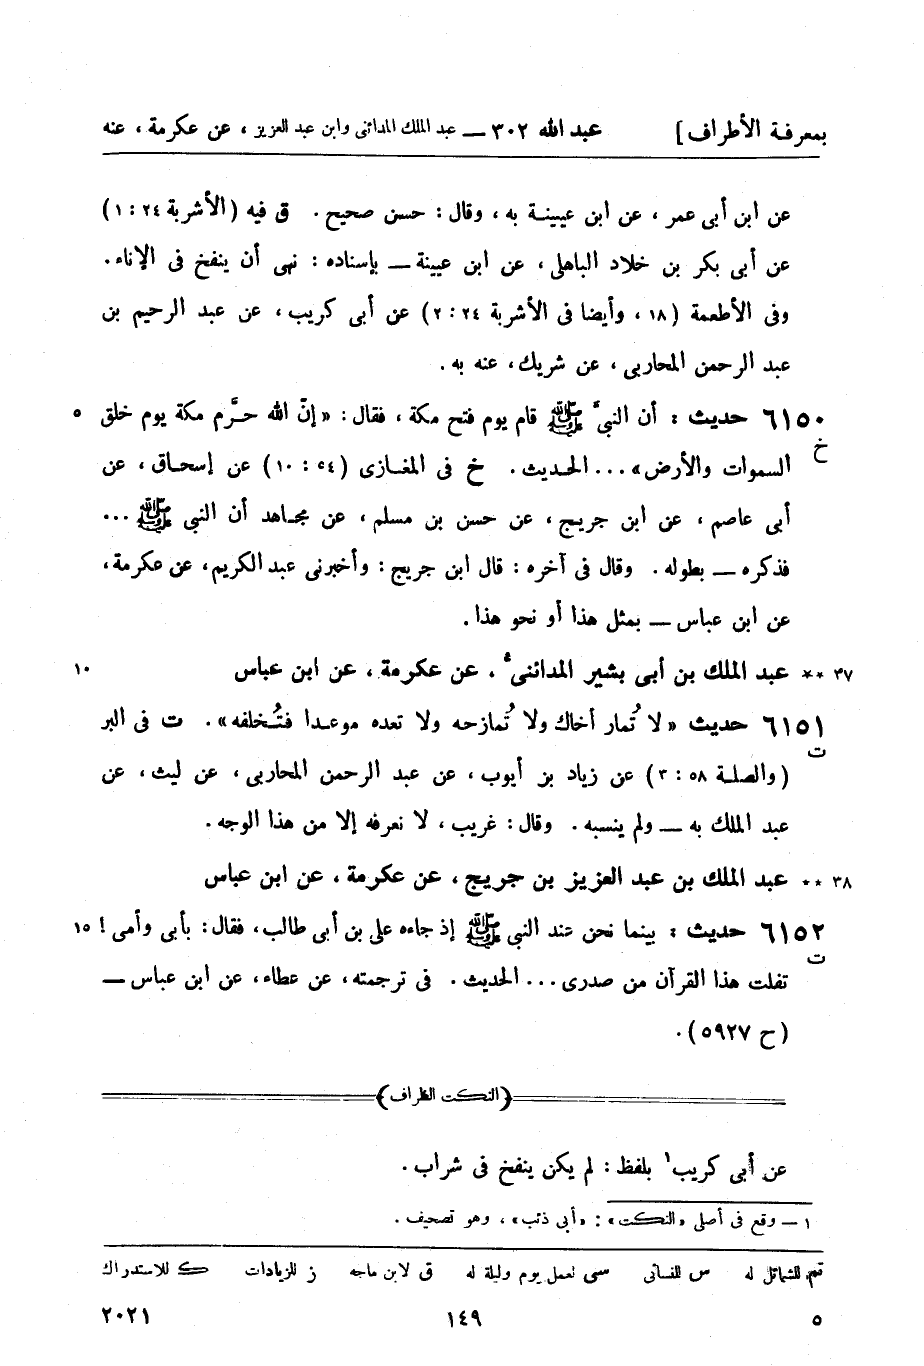 بمعرفة الأطراف] عبد الله ٣٠٢ — عبد الملك المدائنى وابن عبد العزيز ، عن عكرمة ، عنه
عن ابن أبى عمر ، عن ابن عيينة به ، وقال : حسن صحيح . ق فيه (الأشربة ٢٤ : ١)
عن أبى بكر بن خلاد الباهلى ، عن ابن عيينة — بإسناده : نهى أن ينفخ فى الإناء .
وفى الأطعمة (١٨ ، وأيضا فى الأشربة ٢٤ : ٢) عن أبى كريب ، عن عبد الرحيم بن
عبد الرحمن المحاربى ، عن شريك ، عنه به .
٦١٥٠ حديث : أن النبىّ ﷺ قام يوم فتح مكة ، فقال : «إنّ الله حرَّم مكة يوم خلق ٥
خ السموات والأرض» ... الحديث . خ فى المغازى (٥٤ : ١٠) عن إسحاق ، عن
أبى عاصم ، عن ابن جريج ، عن حسن بن مسلم ، عن مجاهد أن النبى ﷺ ...
فذكره — بطوله . وقال فى آخره : قال ابن جريج : وأخبرنى عبد الكريم ، عن عكرمة ،
عن ابن عباس — بمثل هذا أو نحو هذا .
٣٧ ** عبد الملك بن أبى بشير المدائنىء ، عن عكرمة ، عن ابن عباس ١٠
٦١٥١ حديث «لا تُمار أخاك ولا تُمازحه ولا تعده موعدا فتُخلفه» . ت فى البر
ت (والصلة ٥٨ : ٣) عن زياد بن أيوب ، عن عبد الرحمن المحاربى ، عن ليث ، عن
عبد الملك به — ولم ينسبه . وقال : غريب ، لا نعرفه إلا من هذا الوجه .
٣٨ ** عبد الملك بن عبد العزيز بن جريج ، عن عكرمة ، عن ابن عباس
٦١٥٢ حديث : بينما نحن عند النبى ﷺ إذ جاءه على بن أبى طالب ، فقال : بأبى وأمى ! ١٥
ت تفلت هذا القرآن من صدرى ... الحديث . فى ترجمته ، عن عطاء ، عن ابن عباس —
(ح ٥٩٢٧) .
(النكت الظراف)
عن أبى كريب ١ بلفظ : لم يكن ينفخ فى شراب .
١ — وقع فى أصلى «النكت» : «أبى ذئب» ، وهو تصحيف .
تم للشمائل له س للنسائى سى لعمل يوم وليلة له ق لابن ماجه ز للزيادات ك للاستدراك
٥ ١٤٩ ٢٠٢١